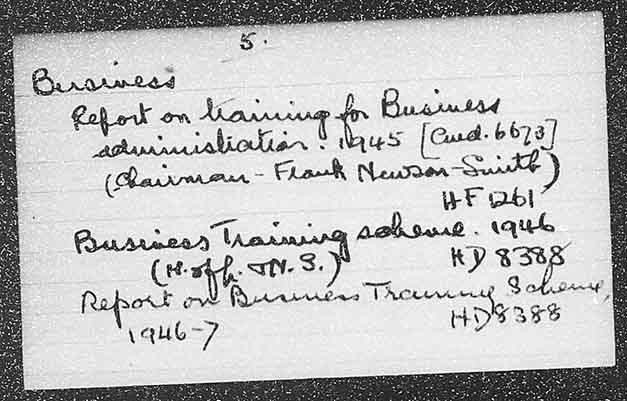 5.
Business
Report on training for Business
administration. 1945 [Cmd. 6673]
(Chairman - Frank Newson-Smith)
HF 1261
Business Training scheme. 1946
HD 8388
Report on Business Training Scheme,
1946-7 HD 8388